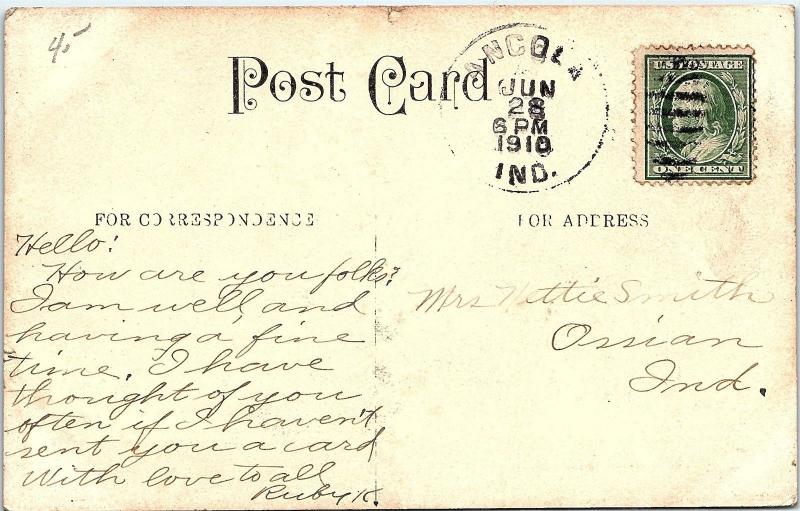 45
Post Card
ANGOLA
JUN
28
6 PM
1910
IND.
U.S. POSTAGE
ONE CENT
FOR CORRESPONDENCE
FOR ADDRESS
Hello!
How are you folks?
I am well, and
having a fine
time. I have
thought of you
often if I haven't
sent you a card
With love to all
Ruby K.
Mrs Nettie Smith
Ossian
Ind.